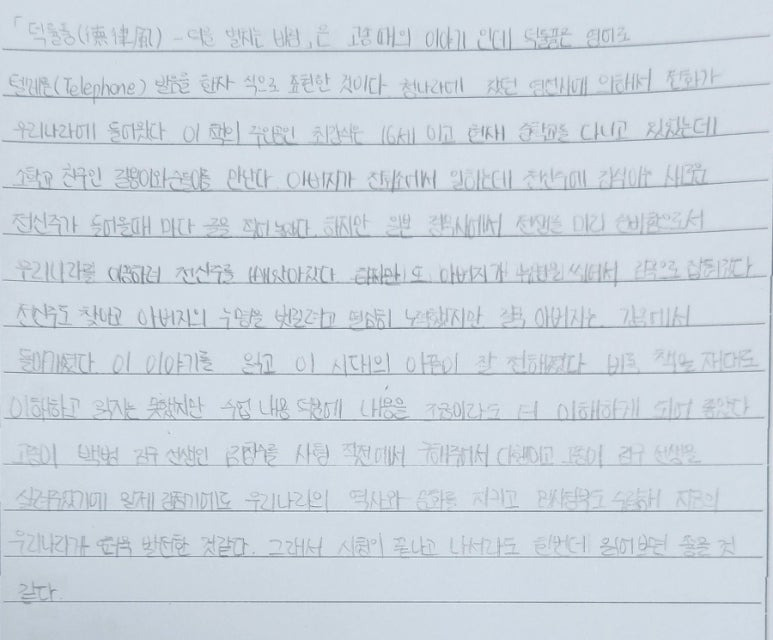 「덕률풍(德律風) - 덕을 펼치는 바람」은 고종 때의 이야기 인데 덕률풍은 영어로
텔레폰(Telephone) 발음을 한자 식으로 표현한 것이다. 청나라에 갔던 영선사에 의해서 전화가
우리나라에 들어왔다. 이 책의 주인공인 최강식은 16세 이고 현재 중학교를 다니고 있었는데
소학교 친구인 길용이와 만난다. 아버지가 전화소에서 일하는데 전신주에 강식이는 새로운
전신주가 들어올때 마다 글을 적어 놓는다. 하지만 일본 전쟁을 미리 준비함으로서
우리나라를 이용하려 전신주를 빼앗아갔다. 하지만 또 아버지가 누명을 써서 감옥으로 잡혀갔다.
전신주도 찾고 아버지의 누명을 벗길려고 열심히 노력했지만 결국 아버지는 감옥에서
돌아가셨다. 이 이야기를 읽고 이 시대의 아픔이 잘 전해졌다. 비록 책을 제대로
이해하고 읽지는 못했지만 수업 내용 덕분에 내용을 조금이라도 더 이해하게 되어 좋았다.
고종이 백범 김구 선생인 김창수를 사형 직전에서 구해줘서 다행이고 고종이 김구 선생을
살려주었기에 일제 강점기에도 우리나라의 역사와 문화를 지키고 임시정부도 수립해 지금의
우리나라가 더욱 발전한 것같다. 그래서 시험이 끝나고 나서라도 한번더 읽어보면 좋을 것
같다.